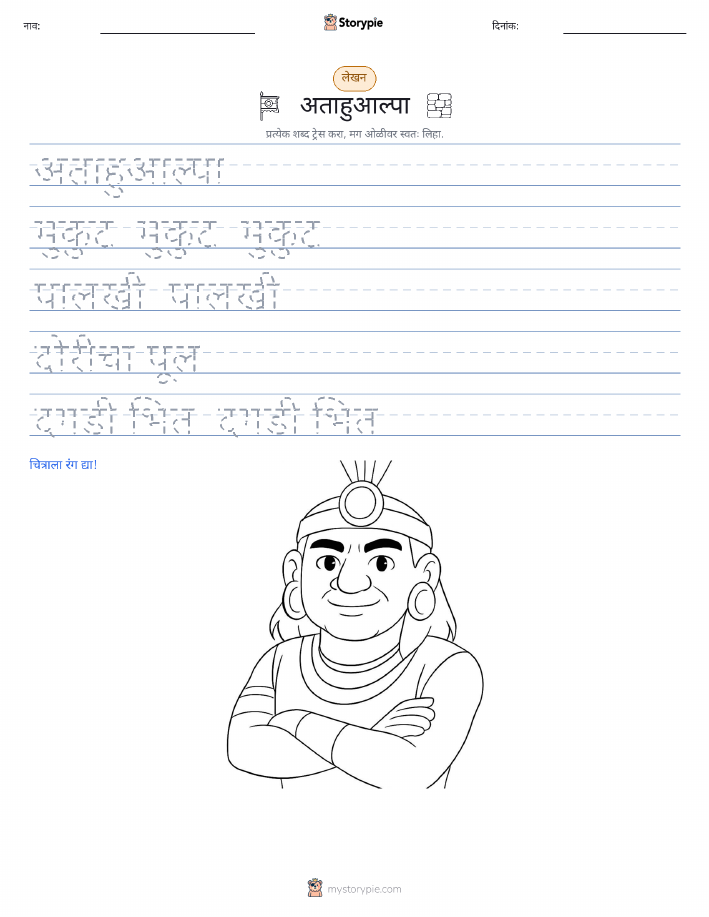 नाव:
Storypie
दिनांक:
लेखन
अताहुआल्पा
प्रत्येक शब्द ट्रेस करा, मग ओळीवर स्वतः लिहा.
अताहुआल्पा
मुकुट मुकुट मुकुट
पालखी पालखी
दोरीचा पूल
दगडी भिंत दगडी भिंत
चित्राला रंग द्या!
mystorypie.com